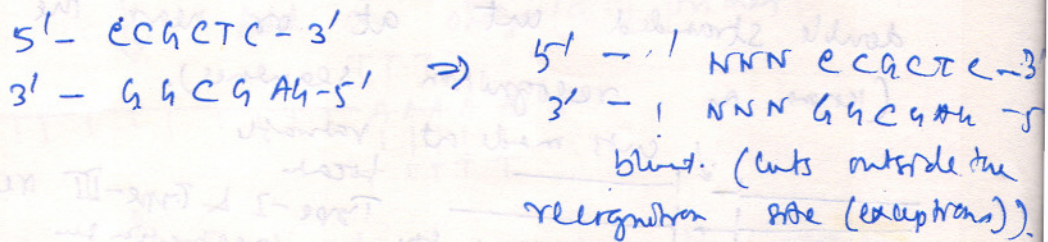 5' - CCGCTC - 3' ⇒ 5' - ' NNN CCGCTC - 3'
3' - GGCGAG - 5' 3' - ' NNN GGCGAG - 5
blunt. (cuts outside the
recognition site (exceptions)).